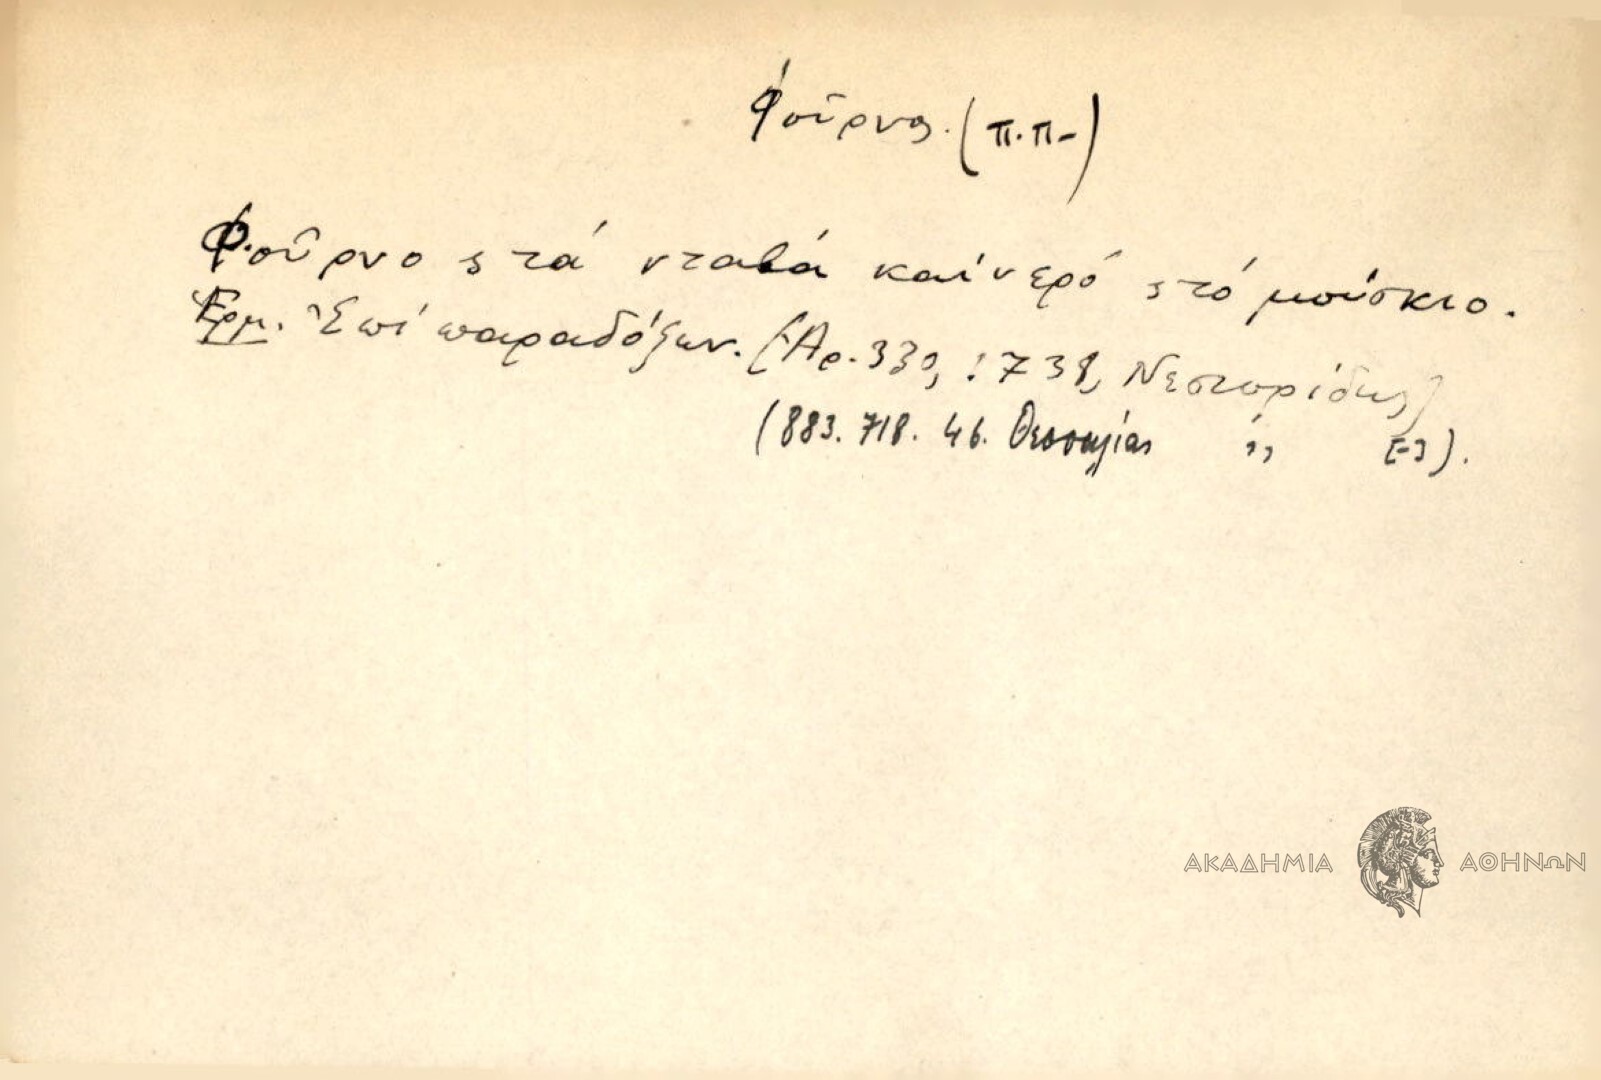 Φοῦρνος. (π.π-)
Φοῦρνο στά νταβά καί νερό στό μπούσκιο.
Ἑρμ. Ἐπί παραδόξων. (Ἀρ. 330, : 738, Νεστορίδης)
(883. 718. 46. Θεσσαλίας " [-]).
ΑΚΑΔΗΜΙΑ ΑΘΗΝΩΝ